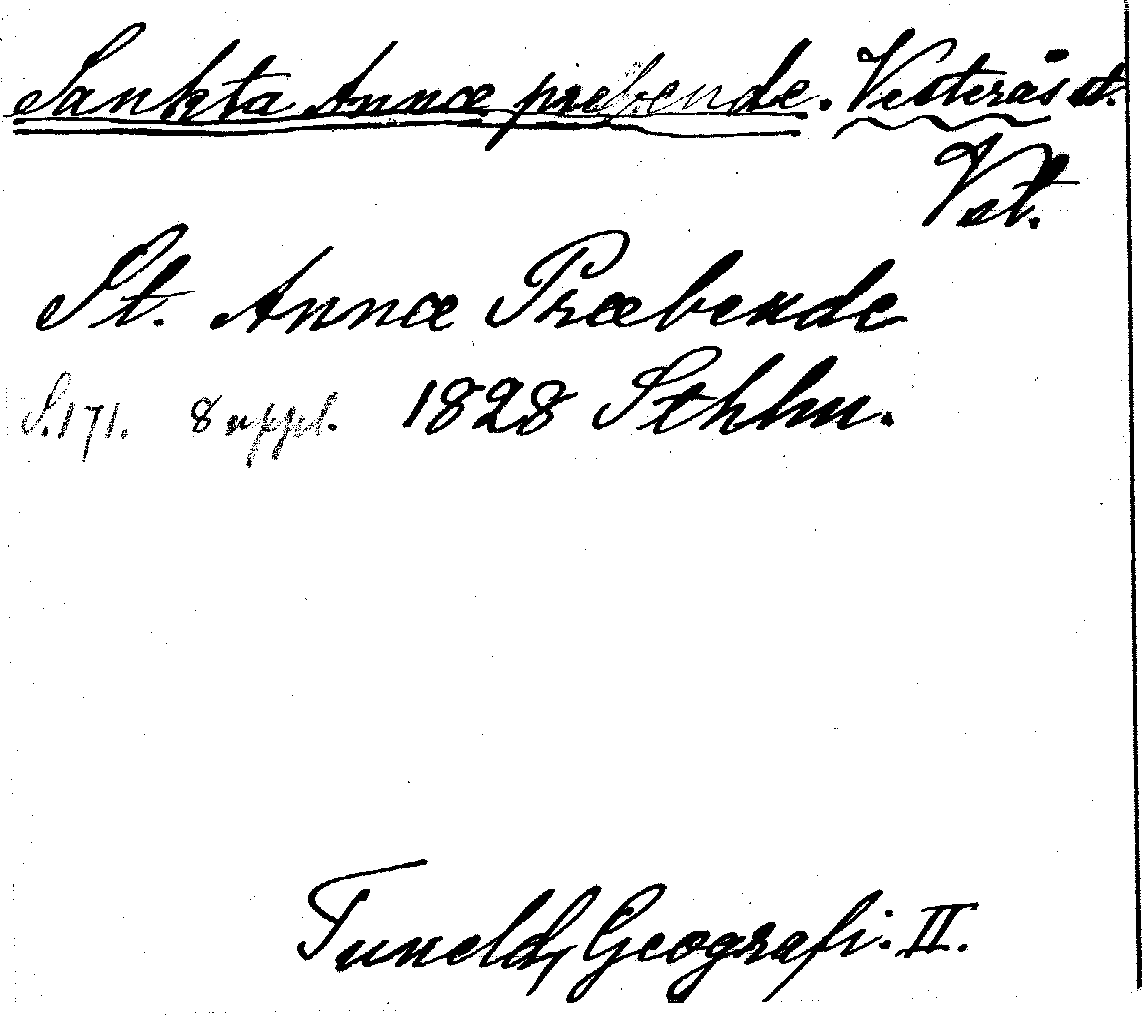 Sankta Annæ prebende. Vesterås st.
Vst.
St. Annæ Præbende
S. 171. 8 uppl. 1828 Sthlm.
Tuneld, Geografi. II.